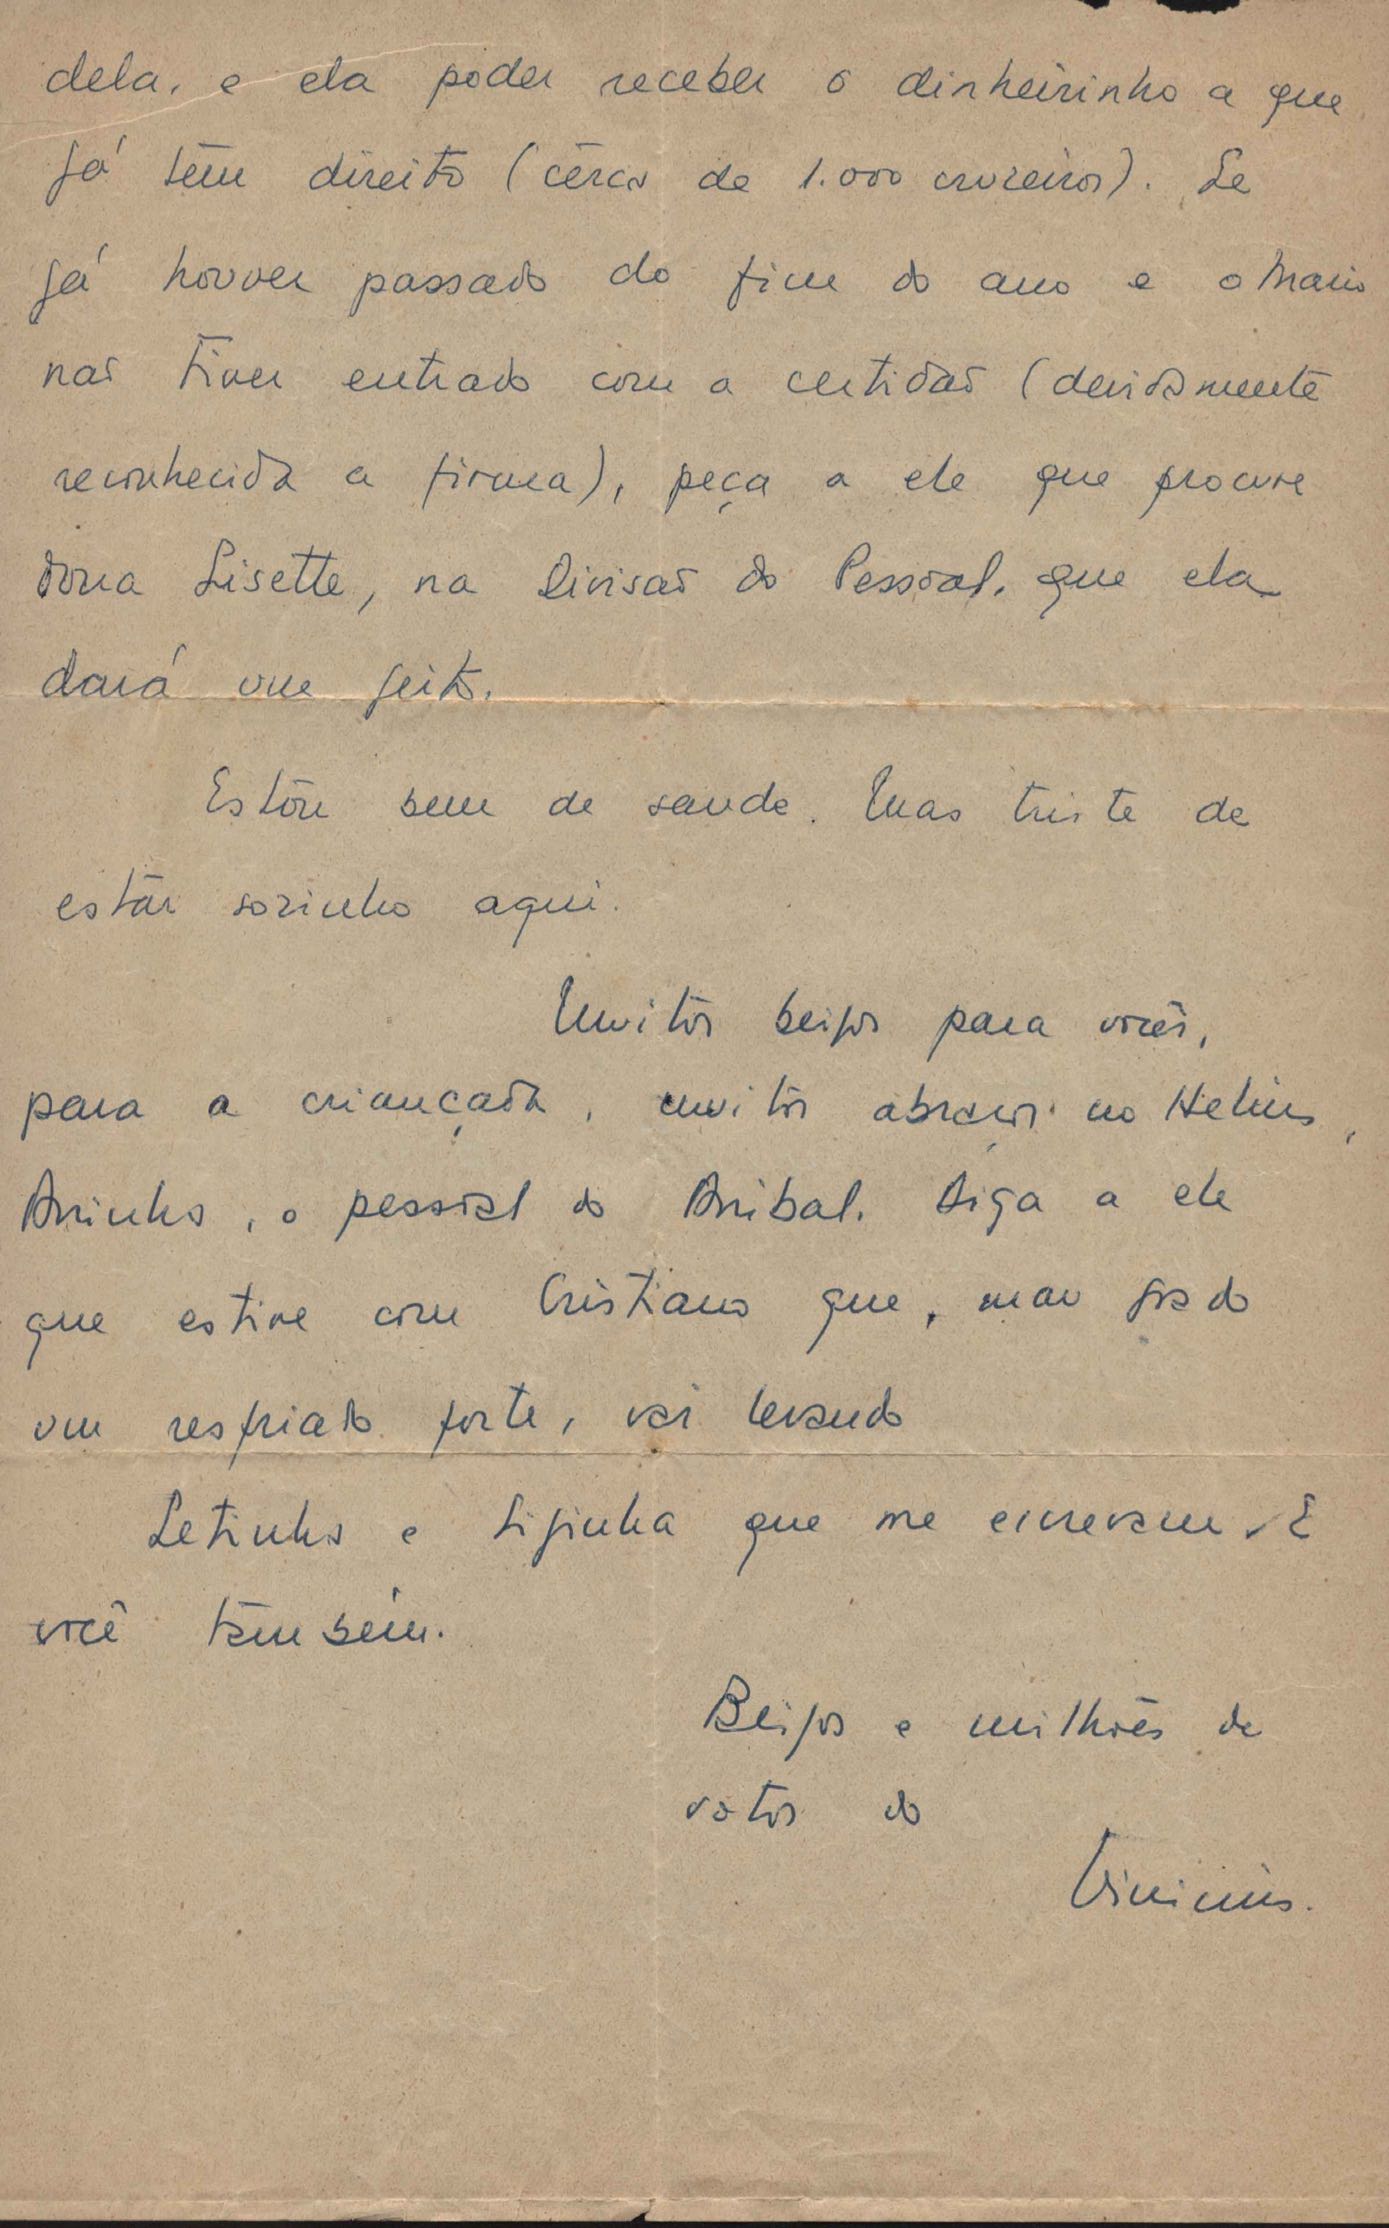 dela, e ela poder receber o dinheirinho a que
já têm direito (cêrca de 1.000 cruzeiros). Se
já houver passado do fim do ano e o Mario
não tiver entrado com a certidão (devidamente
reconhecida a firma), peça a ele que procure
dona Lisette, na Divisão do Pessoal, que ela
dará um jeito.
Estou bem de saude. Mas triste de
estar sozinho aqui.
Muitos beijos para vocês,
para a criançada, muitos abraços ao Helius,
Aninha, o pessoal do Anibal. Diga a ele
que estive com Cristiano que, mau grado
um resfriado forte, vai levando
Letinha e Liginha que me escrevam. E
você tambem.
Beijos e milhões de
votos do
Vinicius.